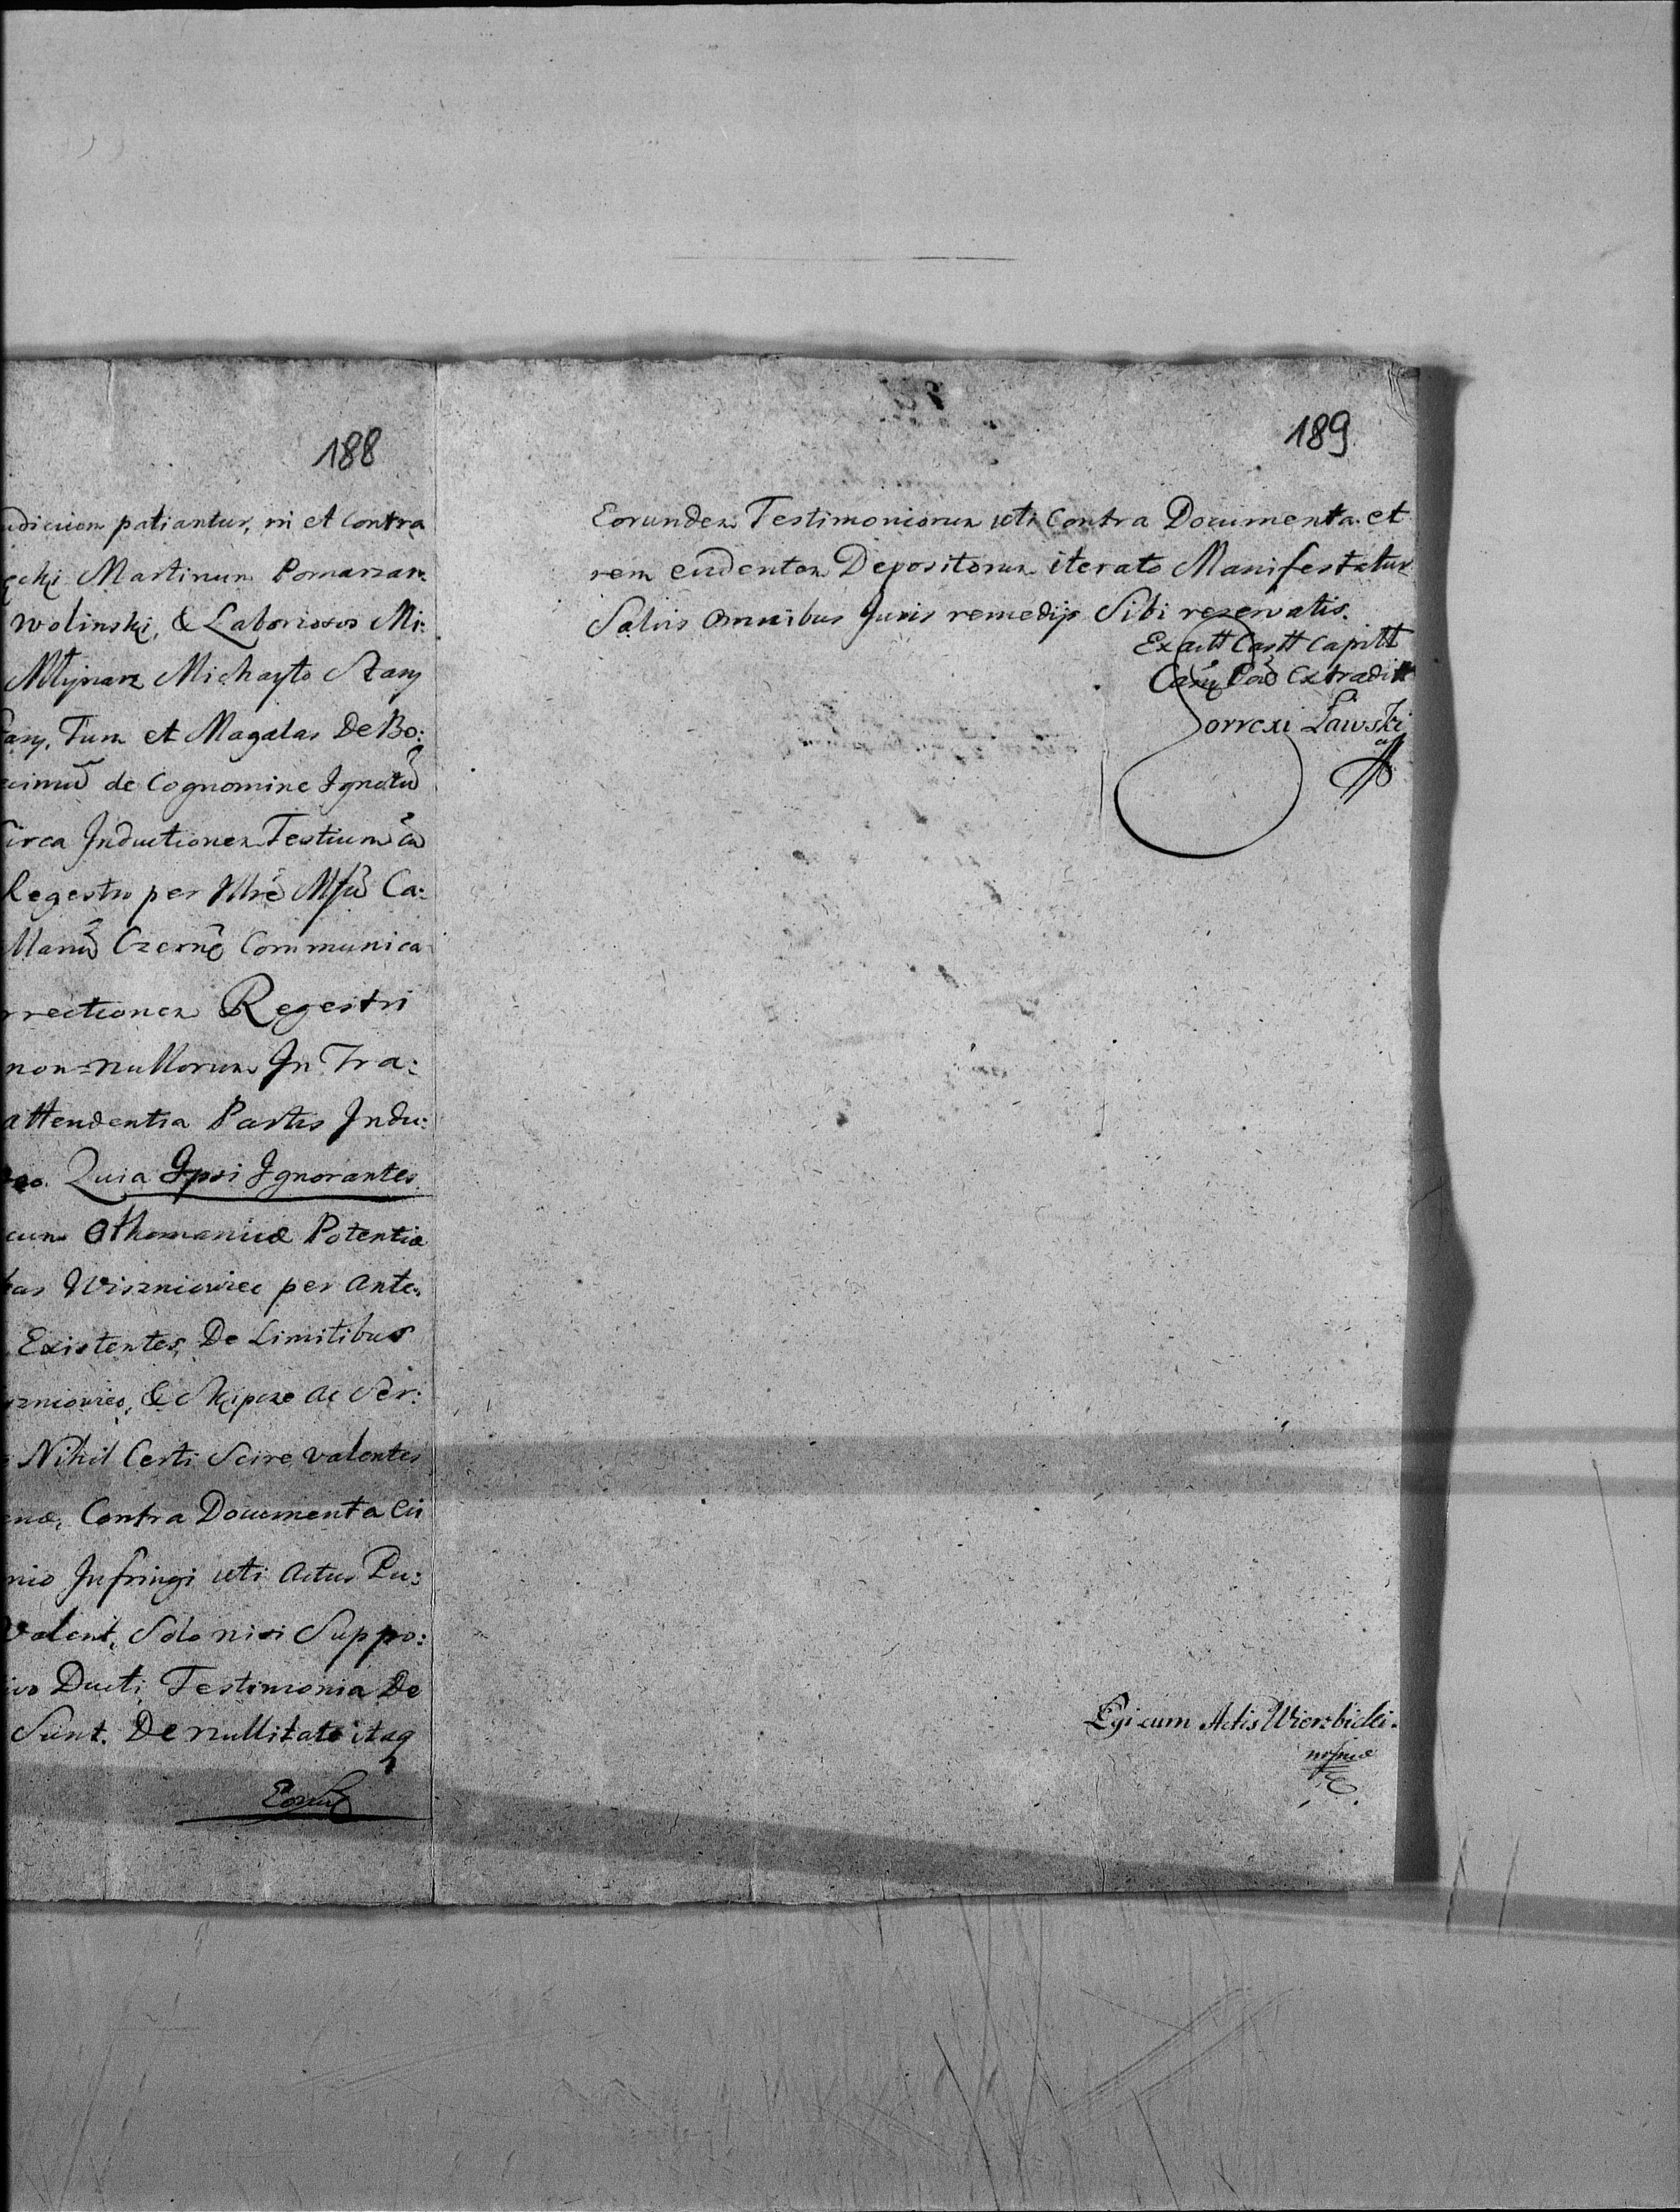 188
udicium patiantur, ni et Contra
ecki Martinum Pomarzan
wolinski, & Laboriosos Mi:
Młynarz Michayło Stary
Tum et Magalas De Bo:
de Cognomine Ignotū
Circa Inductionem Testium
Regestro per Ca:
Czerne Communica
rrectionem Regestri
non=nullorum In Tra:
attendentia Partis Indu:
Quia Ipsi Ignorantes
cum Othomanicæ Potentiæ
Wiszniowiec per Ante
Existentes, De Limitibus
szniowiec, & ac Ser:
Nihil Certi Scire valentes
Contra Documenta
Infringi uti Actus Pu:
valent, Solo nisi Suppo:
Ducti Testimonia De
Sunt. De nullitate itaq
189
Eorundem Testimoniorum uti Contra Documenta et
rem evidentem Depositorum iterato Manifestatur
Salvis Omnibus Juris remedijs Sibi reservatis.
Ex actt Castt Capitt
Extradit
Correxi Ławski
Egi cum Actis Wierzbicki